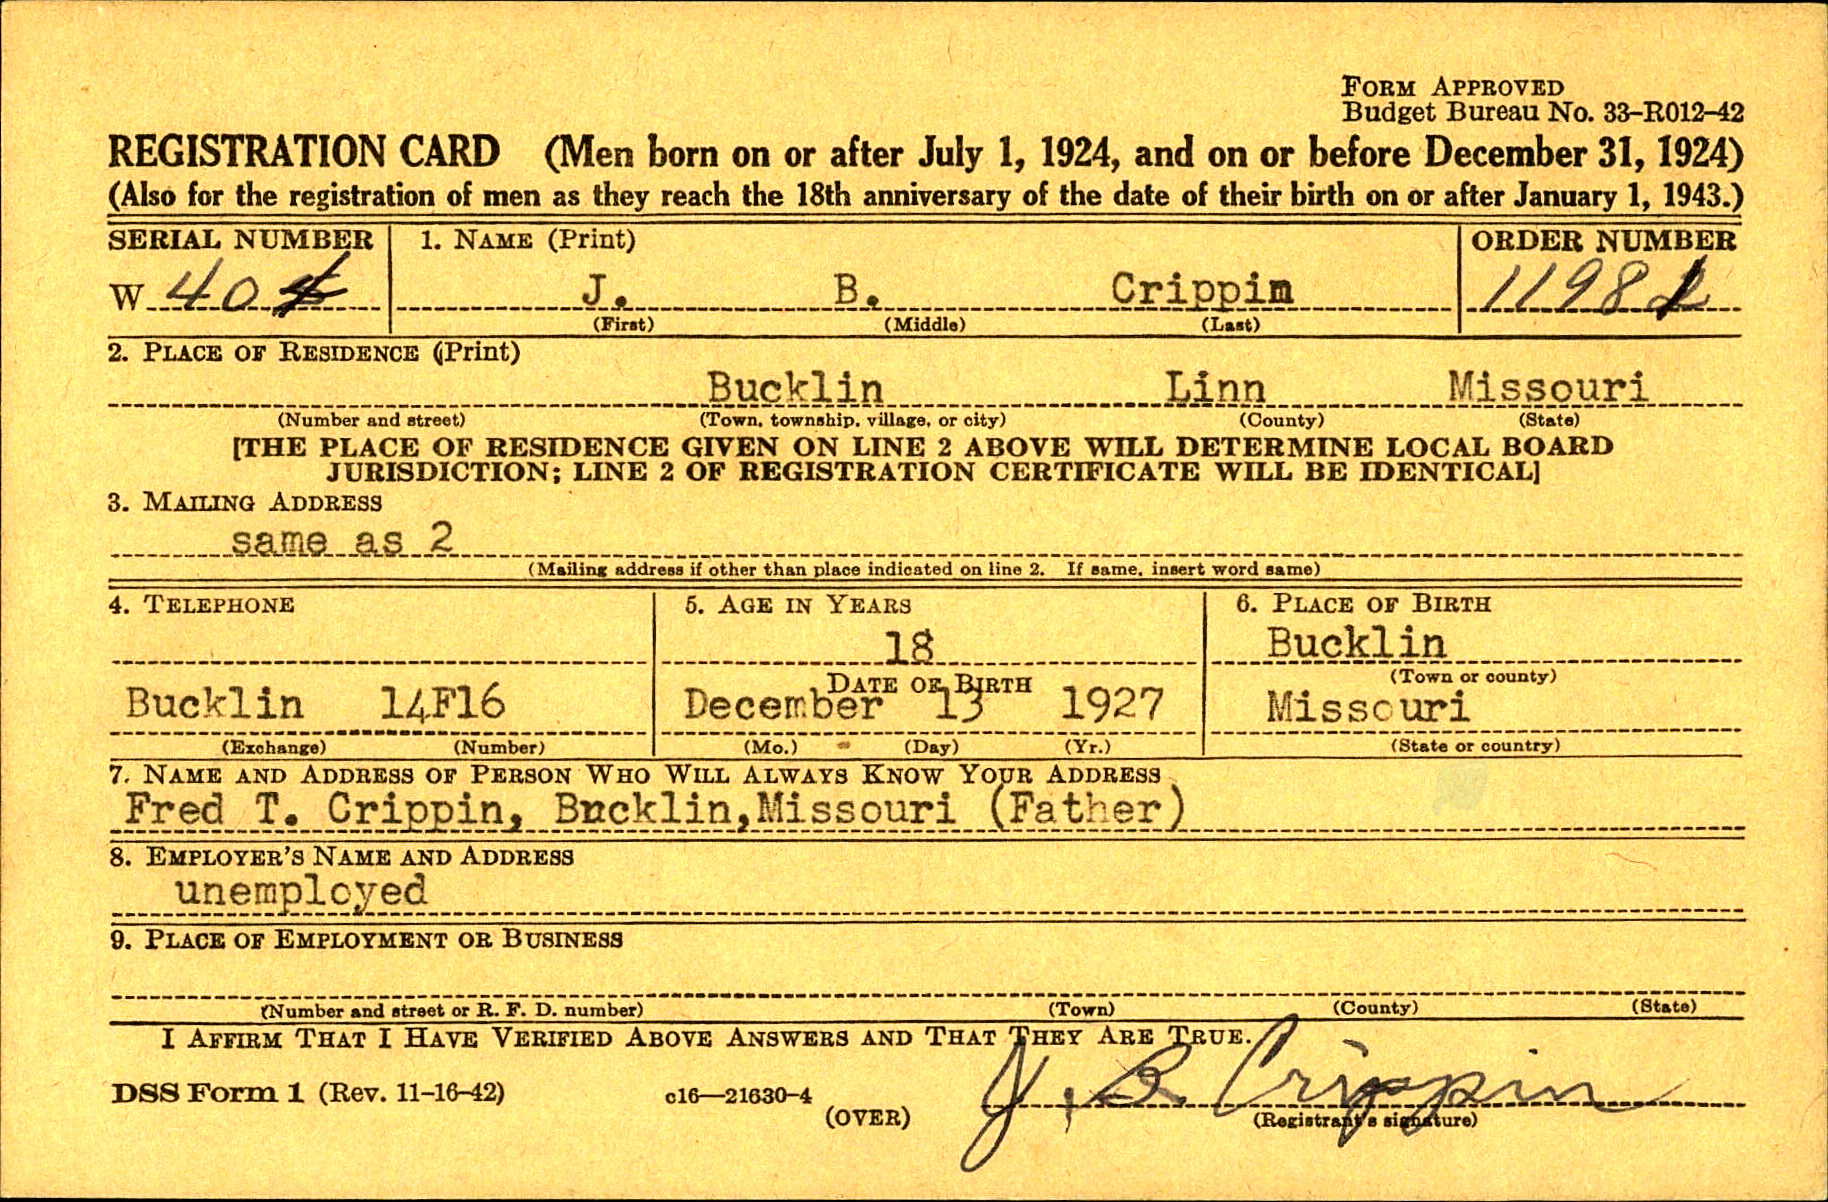 FORM APPROVED
Budget Bureau No. 33-R012-42
REGISTRATION CARD (Men born on or after July 1, 1924, and on or before December 31, 1924)
(Also for the registration of men as they reach the 18th anniversary of the date of their birth on or after January 1, 1943.)
SERIAL NUMBER 1. NAME (Print) ORDER NUMBER
W 40 J. B. Crippin 1198
(First) (Middle) (Last)
2. PLACE OF RESIDENCE (Print)
Bucklin Linn Missouri
(Number and street) (Town, township, village, or city) (County) (State)
[THE PLACE OF RESIDENCE GIVEN ON LINE 2 ABOVE WILL DETERMINE LOCAL BOARD
JURISDICTION; LINE 2 OF REGISTRATION CERTIFICATE WILL BE IDENTICAL]
3. MAILING ADDRESS
same as 2
(Mailing address if other than place indicated on line 2. If same, insert word same)
4. TELEPHONE 5. AGE IN YEARS 6. PLACE OF BIRTH
18 Bucklin
DATE OF BIRTH (Town or county)
Bucklin 14F16 December 13 1927 Missouri
(Exchange) (Number) (Mo.) (Day) (Yr.) (State or country)
7. NAME AND ADDRESS OF PERSON WHO WILL ALWAYS KNOW YOUR ADDRESS
Fred T. Crippin, Bucklin,Missouri (Father)
8. EMPLOYER'S NAME AND ADDRESS
unemployed
9. PLACE OF EMPLOYMENT OR BUSINESS
(Number and street or R. F. D. number) (Town) (County) (State)
I AFFIRM THAT I HAVE VERIFIED ABOVE ANSWERS AND THAT THEY ARE TRUE.
DSS Form 1 (Rev. 11-16-42) c16—21630-4 J. B. Crippin
(OVER) (Registrant's signature)